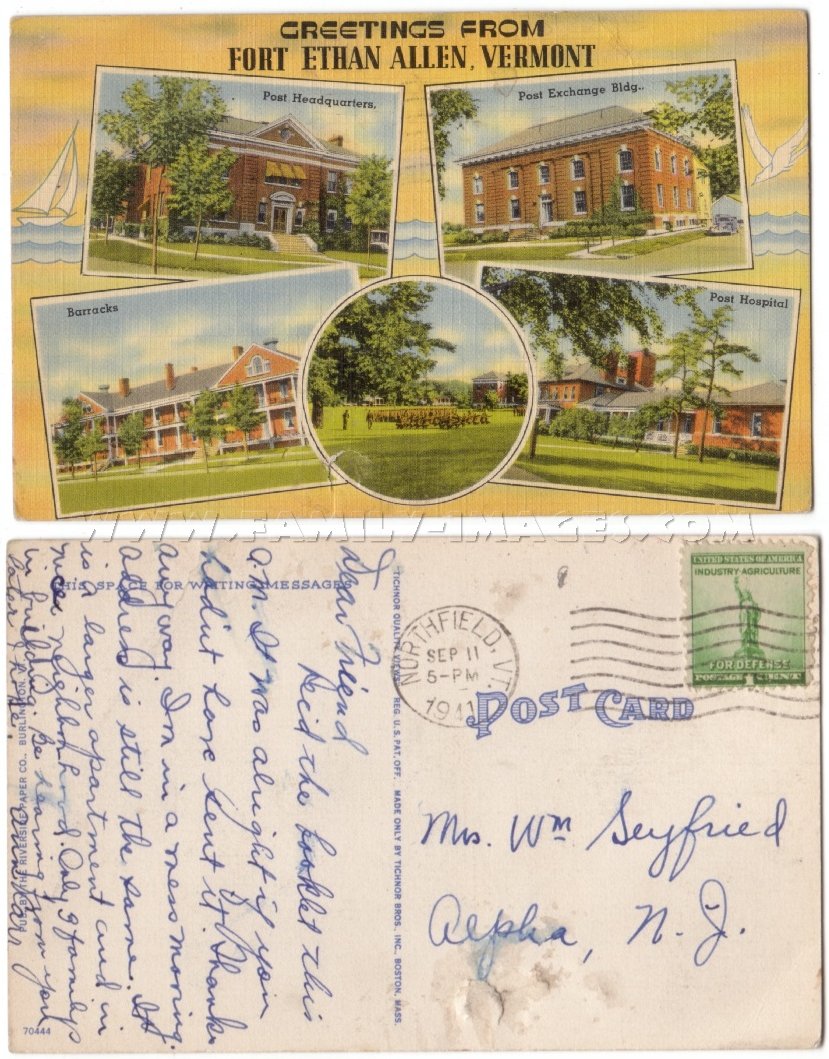 GREETINGS FROM
FORT ETHAN ALLEN, VERMONT
Post Headquarters.
Post Exchange Bldg.
Barracks
Post Hospital
WWW.FAMILY-IMAGES.COM
THIS SPACE FOR WRITING MESSAGES
Dear Friend
Re'd the booklet this
a.m. It was alright if you
hadn't have sent it. Thanks
anyway. I'm in a mess moving.
address is still the same. It
is a larger apartment and in
nicer neighborhood. Only 9 familys
in building. Be hearing from you
later I hope.
PUB. BY THE RIVERSIDE PAPER CO., BURLINGTON, VT.
70444
TICHNOR QUALITY VIEWS REG. U.S. PAT. OFF. MADE ONLY BY TICHNOR BROS. INC. BOSTON, MASS.
NORTHFIELD, VT.
SEP 11
5-PM
1941
UNITED STATES OF AMERICA
INDUSTRY-AGRICULTURE
FOR DEFENSE
POSTAGE 1 CENT
POST CARD
Mrs. Wm Seyfried
Alpha, N. J.